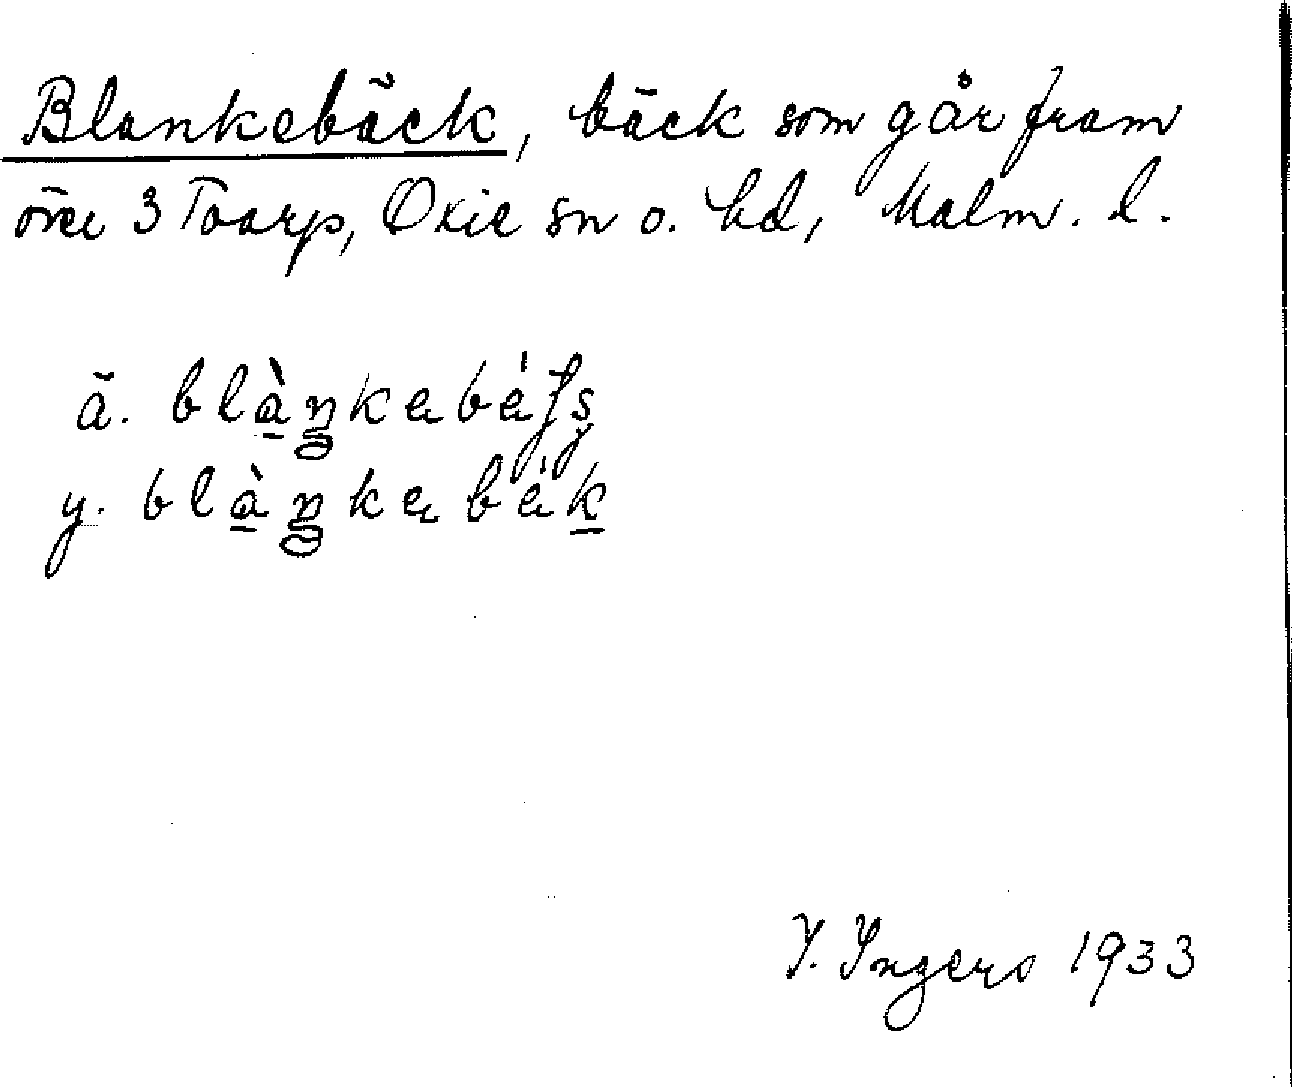 Blankebäck, bäck som går fram
över 3 Toarp, Oxie sn o. hd, Malm. l.
ä. blàŋkebä́
y. blàŋkebä́k
I. Ingers 1933